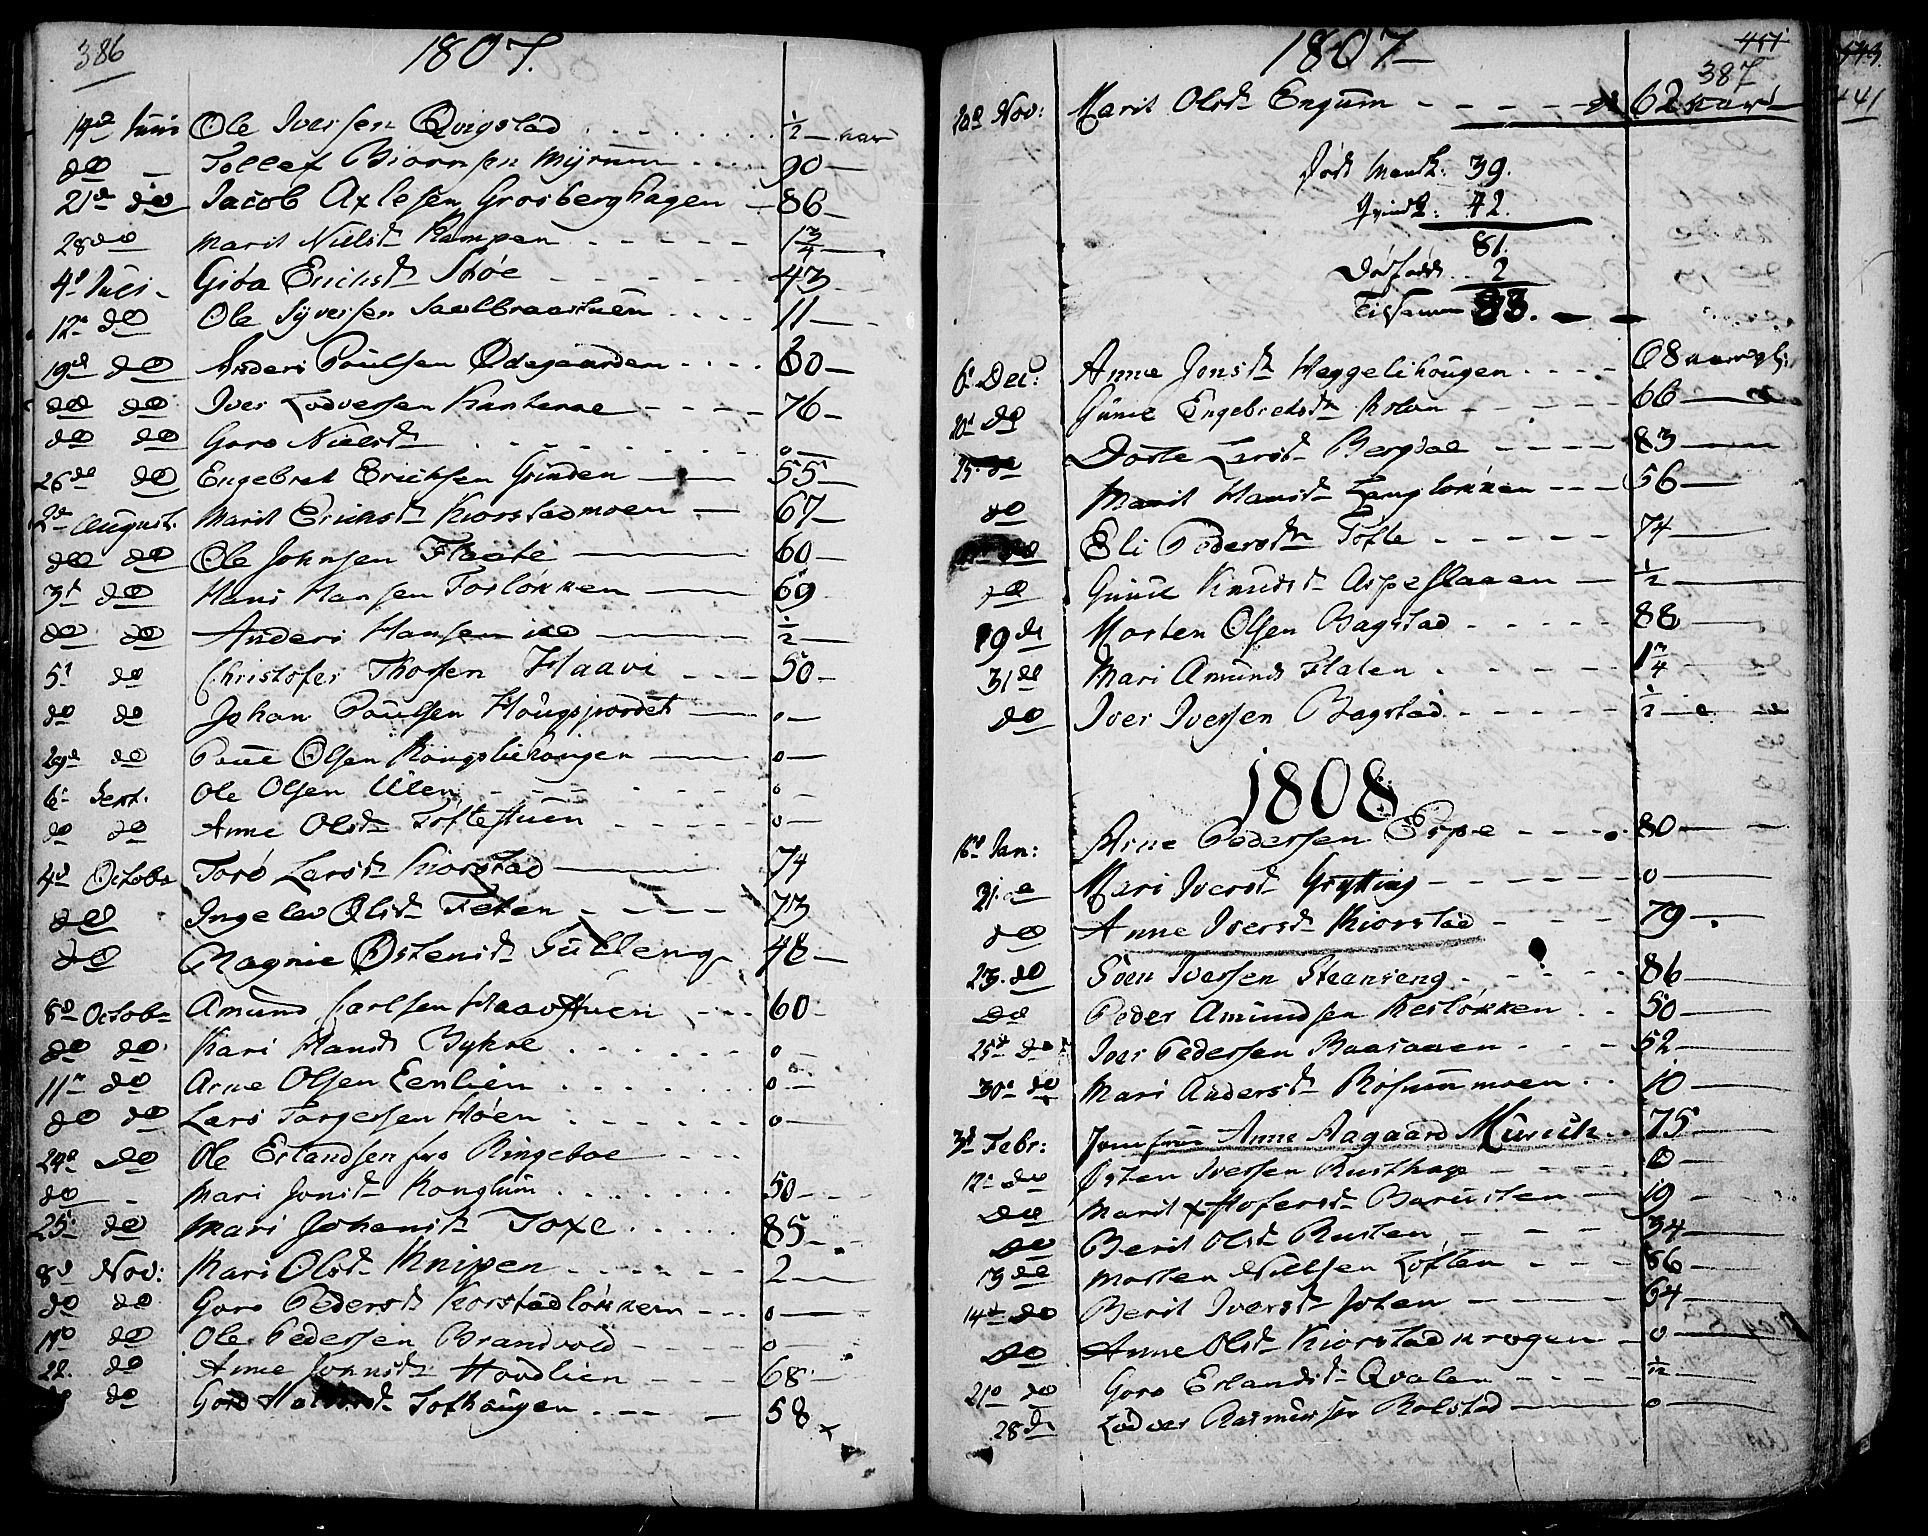 386
1807.
19de Junii Ole Iversen Qvigstad ½ aar
do Tollef Biørnsen Myrum 90
21de do Jacob Axlesen Grosberghagen 86
28 do Marit Nielsd. Kampen 1¾
4d Juli Giøa Erichsd. Skøe 43
12 do Ole Syversen Saalbraastuen 11
19de do Anders Poulsen Ødegaarden 80
do do Iver Lodversen Kanterne 76
do do Goro Nielsd. 0
26de do Engebret Erichsen Grinden 55
2de August. Marit Erichsd. Kiorstadmoen 67
do do Ole Johnsen Flaate 60
3d do Hans Hansen Foslökken 69
do do Anders Hansen ibd ½
5t do Christofer Thorsen Haavi 50
do do Johan Poulsen Hougsjordet 0
29de do Poul Olsen Kongslihougen 0
6t Sept. Ole Olsen Ulen 0
do do Anne Olsd. Toftestuen 0
4d Octobr Torø Larsd. Kiorstad 74
do Ingelev Olsd. Feten 73
do Ragnie Østensd. Tulleng 48
8de Octobr Amund Carlsen Haavstuen 60
do do Kari Hansd. Bykre 0
11 do Arne Olsen Eenlien 0
do do Lars Torgersen Høen 0
24de do Ole Erlandsen fra Ringeboe
do Mari Jonsd. Konglum 50
25 do Mari Johansd. Toxe 85
8d Nov: Kari Olsd. Knipen 2
do do Goro Pedersd. Kiorstadlökken 0
do Ole Pedersen Brandvold 0
22. do Anne Jonnsd. Hovdlien 68
do Goro Halvorsd. Tofthaugen 58
1807
451
387
543
441
Nov: Marit Olsd. Engum 62 aar
Døde Mandk: 39.
Qvindk: 42.
81.
Dødfødde 2
Tilsamm 83.
6 Dec: Anne Jonsd. Heggelihougen 68
20 do Gunil Engebretsd. Kolan 66
25 do Dorte Larsd. Bergdal 83
do Marit Hansd. Langlökken 56
do Eli Pedersd. Tofte 74
do Gunil Knudsd. Aspeslaaen ½
do Morten Olsen Bagstad 88
31de Mari Amunds Flaten 1¾
do Iver Iversen Bagstad ½
1808
16d Jan: Arne Pedersen Espe 80
21. Mari Iversd. Grytting 0
do Anne Iversd. Kiorstad 79
23. do Sven Iversen Steenseng 86
do Peder Amundsen Keslökken 50
25d do Iver Pedersen Baasaaen 52
30 do Mari Andersd. Rosummoen 10
3d Febr: Jomfrue Anne Aagaard Munch 75
12 do Østen Iversen Rusthage 0
do Marit Xstofersd. Barusten 19
do Berit Olsd. Rusten 34
13de Morten Nielsen Loften 86
14d do Berit Iversd. Joten 64
do Anne Olsd. Kiorstadkrogen 0
21d do Goro Erlandsd. Qvalen ½
28d Lodver Rasmussen Rolstad 0